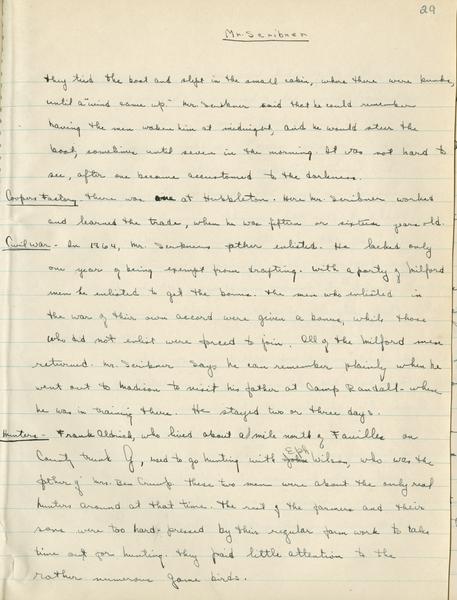 29
Mr. Scribner
they tied the boat and slept in the small cabin, where there were bunks,
until a "wind came up." Mr. Scribner said that he could remember
having the men waken him at midnight, and he would steer the
boat, sometimes until seven in the morning. It was not hard to
see, after one became accustomed to the darkness.
Coopers Factory there was one at Hubbleton. Here Mr. Scribner worked
and learned the trade, when he was fifteen or sixteen years old.
Civil War - In 1864, Mr. Scribners father enlisted. He lacked only
one year of being exempt from drafting. With a party of Milford
men he enlisted to get the bonus. The men who enlisted in
the war of their own accord were given a bonus, while those
who did not enlist were forced to join. All of the Milford men
returned. Mr. Scribner says he can remember plainly when he
went out to Madison to visit his father at Camp Randall - where
he was in training there. He stayed two or three days.
Hunters - Frank Aldrich, who lived about a/mile north of Faville's on
County trunk G, used to go hunting with Eph Wilson, who was the
father of Mrs. Ben Crump. These two men were about the only real
hunters around at that time. The rest of the farmers and their
sons were too hard-pressed by their regular farm work to take
time out for hunting. They paid little attention to the
rather numerous game birds.